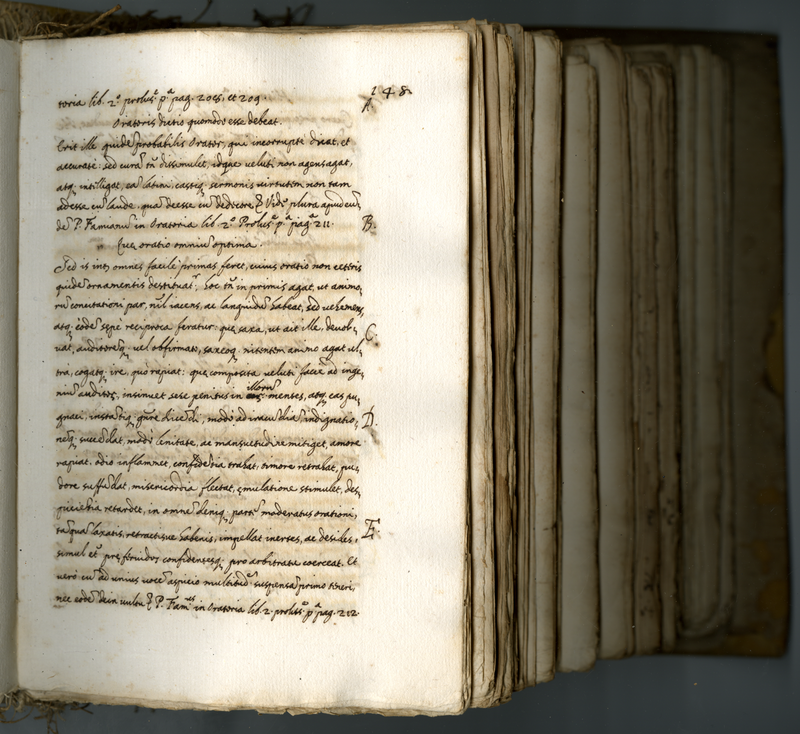 148.
toria lib. 2.º prolus.e p.a pag. 208, et 209.
A.
Oratoris dictio quomodo esse debeat.
Erit ille quidē probabilis Orator, qui incorruptè dicat, et
accurate: sed curā tñ dissimulet, idqȝ veluti non agens agat,
atqȝ intelligat, eā latini, castiqȝ sermonis virtutem non tam
adesse cū laude, quā deesse cū dedecore & Vidē plura apud eū,
dē P. Famianū in Oratoria lib. 2.º Prolus.e p.a pag.a 211.
B.
Quę oratio omniū optima.
Sed is intȝ omnes facile primas feret, cuius oratio non cęteris
quidē ornamentis destituatr, hoc tñ in primis agat, ut animo,
rū concitationi par, nīl iacens, ac languidū habeat, sed vehemens,
atqȝ eodē sepè reciproca feratur: quę saxa, ut ait ille, devol,
C.
vat, auditorēqȝ vel obfirmato, saxeoqȝ nitentem animo agat ul,
tra, cogatqȝ ire, quo rapiat: quę composita veluti faciē ad inge,
niū auditȝ, insinuet sese penitus in illorū mentes, atqȝ eas pu,
gnaci, instātiqȝ gñre dicēdi, modò ad iracūdiā, indignatio,
D.
nēqȝ succēdat, modò lenitate, ac mansuetudine mitiget, amore
rapiat, odio inflammet, confidētia trahat, timore retrahat, pu,
dore suffūdat, misericordia flectat, ęmulatione stimulet, des,
picientia retardet, in omnē deniqȝ partē moderatus orationi,
E.
tāquā laxatis, retractisve habenis, impellat inertes, ac desides,
simul et pręfervidos confidentesqȝ pro arbitratu coerceat. Et
verò cū ad unius vocē aspicio multitudē suspensā primò teneri,
nec eodē dein vultu & P. Fam.us in Oratoria lib. 2. prolus.e p.a pag. 212.